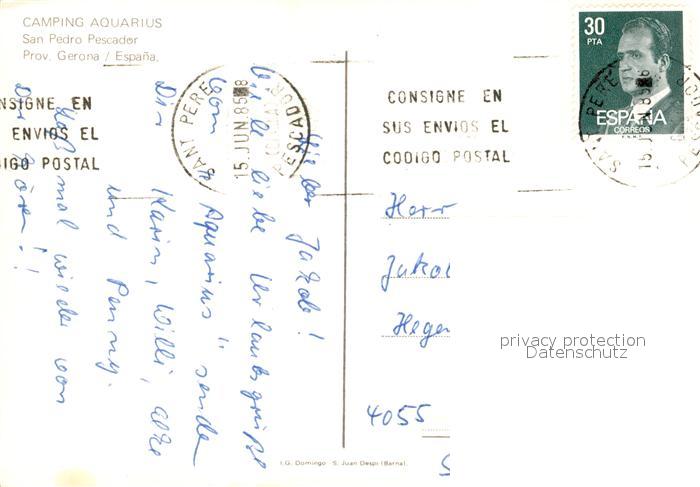 CAMPING AQUARIUS
San Pedro Pescador
Prov. Gerona / España.
30
PTA
ESPAÑA
CORREOS
F.N.M.T.
NSIGNE EN
ENVIOS EL
IGO POSTAL
SANT PERE
15.JUN.85
PESCADOR
CONSIGNE EN
SUS ENVIOS EL
CODIGO POSTAL
SANT PERE
15 JUN 85
PESCADOR
Lieber Jakob!
Viele liebe Urlaubsgrüße
vom "Aquarius" senden
Dir Karin, Willi,
und Penny.
Laß mal wieder von
Dir hören!!
Herr
Jakob
Hege
privacy protection
Datenschutz
4055
S
I.G. Domingo - S. Juan Despi (Barna).